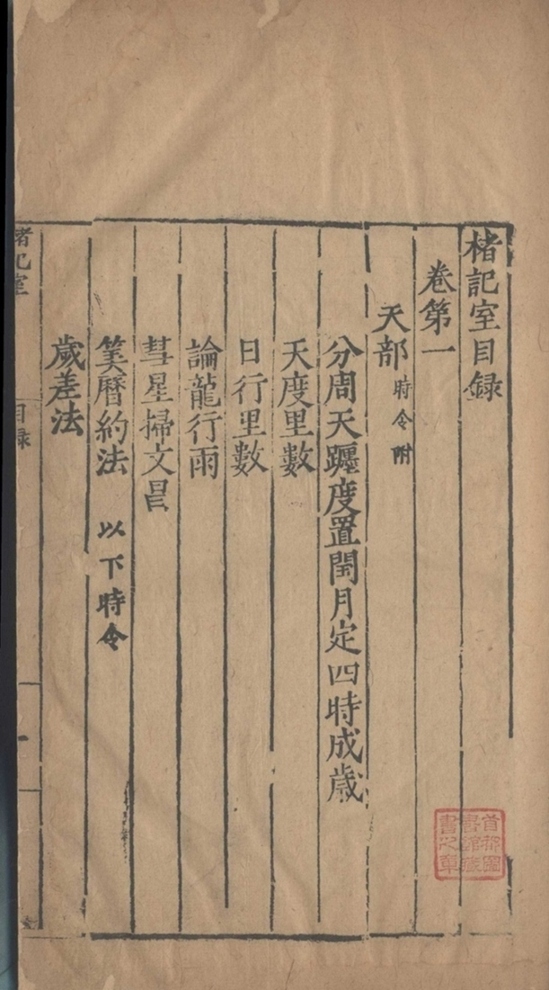 楮記室目録
卷第一
天部 時令附
分周天躔度置閏月定四時成歲
天度里數
日行里數
論龍行雨
彗星掃文昌
筭曆約法 以下時令
歲差法
楮記室
目録
一
首都圖書館藏書之章